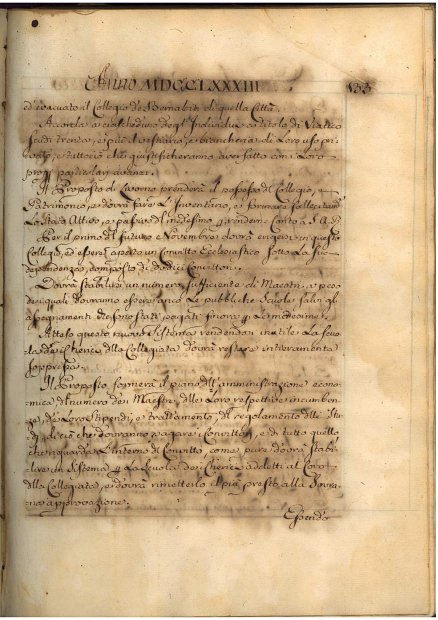 Anno MDCCLXXXIII 133
ed evacuato il Collegio de Bernabiti di quella Città.
Accorda a ciascheduno degl' Individui a titolo di Viatico
Scudi trenta, e più il vestiario, e biancheria di Loro uso pri-
vato, e tutto ciò che giustificheranno aver fatto con i Loro
particolari avanzi.
Il Proposto di Livorno prenderà il possesso del Collegio, e
Patrimonio, e dovrà fare l'Inventario, e formare sollecitam.
Lo Stato Attivo, e passivo del medesimo p renderne Conto a S. A. R.
Per il primo del futuro Novembre dovrà erigersi in questo
Collegio, ed essere aperto un Convitto Ecclesiastico sotto La sua
dipendenza, composto di dodici Convittori.
Dovrà stabilirsi un numero sufficiente di Maestri, a peso
dei quali dovranno essere anco Le pubbliche Scuole salvi gl'
assegnamenti che sono stati pagati finora p Le medesime.
Atteso questo nuovo Sistema rendendosi inutile La Scuo-
la de Cherici della Collegiata dovrà restare intieramente
soppressa.
Il Proposto formerà il piano dell' amministrazione econo-
mica del numero dei Maestri, delle Loro respettive incumben-
ze, de Loro Stipendi, e trattamento, del regolamento delle Stu-
di, di ciò che dovranno pagare i Convittori, e di tutto quello
che riguarda L'interno del Convitto, come pure dovrà Stabi-
lire un Sistema p La Scuola dei Cherici addetti al Coro
della Collegiata, e dovrà rimetterlo il più presto alla Sovra-
na approvazione.
Essendo